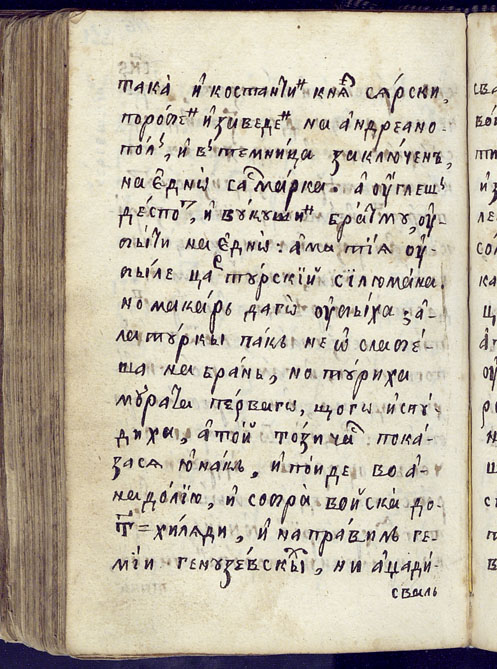 така̀ и҆ костанти́н кнѧ̑з сѧ́рски,
поробен и҆ заведен на а҆ндреано-
пол̾, и҆ в̾ темница заключенъ,
на є҆днѡ̀ са марка. а҆ оу҆глеш̾
де́спот, и҆ вукуши́н братму, оу҆-
били на є҆днѡ̀: а҆ма тїѧ оу҆-
биле цар турскїй сїлюмана.
но макарь дагѡ̀ оу҆быха: а҆-
ла туркы пакъ не ѡ҆слабе-
ша на брань, но туриха
мꙋрата пе́рвагѡ, щогѡ и҆спу́-
диха, а҆ той този час пока-
засѧ ю҆накъ, и҆ по́иде во а҆-
надо́лїю, и҆ собра̀ войска̀ до-
т=хилѧди, и҆ направилъ ге-
мїи генузе́вскы, ни а҆цади-
свалъ